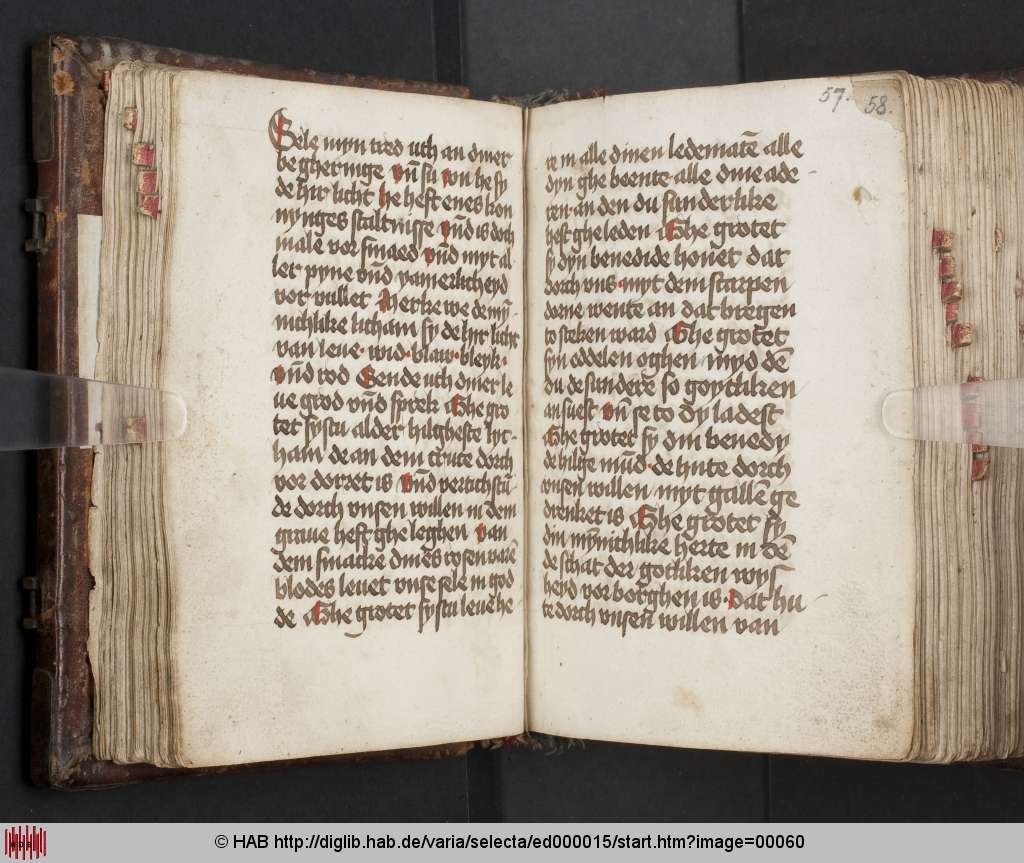 Sele myn tred uth an diner
begheringe vn̄ su von he sy
de hir licht he heft enes kon
nynges staltnisse vn̄d is doch
male vor smaed vn̄d myt al
ler pyne vn̄d yamerlicheyd
vor vullet Merke we de mȳ
nichlike licham sy de hir licht
van leue · wid · blaw · bleyk ·
vn̄d rod Sende uth diner le
ue grod vn̄d sprek Ghe gro
tet systu alder hilgheste lyc-
ham de an dem cruce dorch
vor dorret is vn̄d
de dorch vnsen willen in dem
graue heft ghe leghen van
dem smacke dines rosen varē
blodes leuet vnse sele in god
de Ghe grotet systu leue he
re in alle dinen ledematē alle
dyn ghe beente alle dine ade
ren · an den du sunderlike
hest ghe leden Ghe grotet
sy dyn benedide houet dat
dorch vns · myt dem scarpen
dorne wente an dat bregen
to steken ward Ghe grotet
syn oddelen oghen myd dē
du de sundere so gotliken
an suest vn̄ se to dy ladest
Ghe grotet sy din benedy
de hilge mūd · de hute dorch
vnsen willen myt gallē ge
drenket is Ghe grotet sy
din mȳnichlike herte in dē
de schat der gotliken wys
heyd vorborghen is · Dat hu
te dorch vnsen̄ willen van
57. 58.
© HAB http://diglib.hab.de/varia/selecta/ed000015/start.htm?image=00060